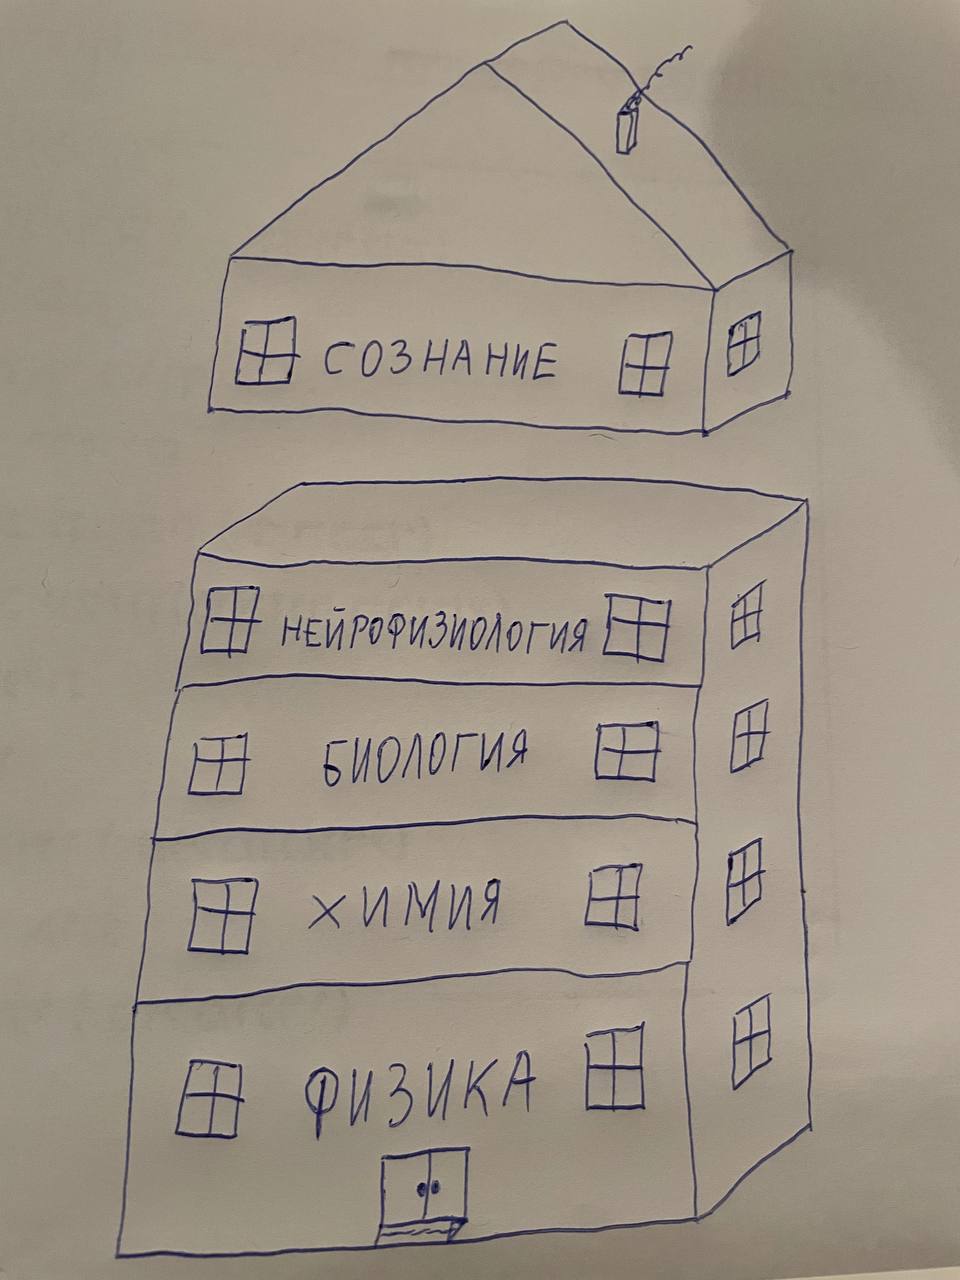 СОЗНАНИЕ
НЕЙРОФИЗИОЛОГИЯ
БИОЛОГИЯ
ХИМИЯ
ФИЗИКА